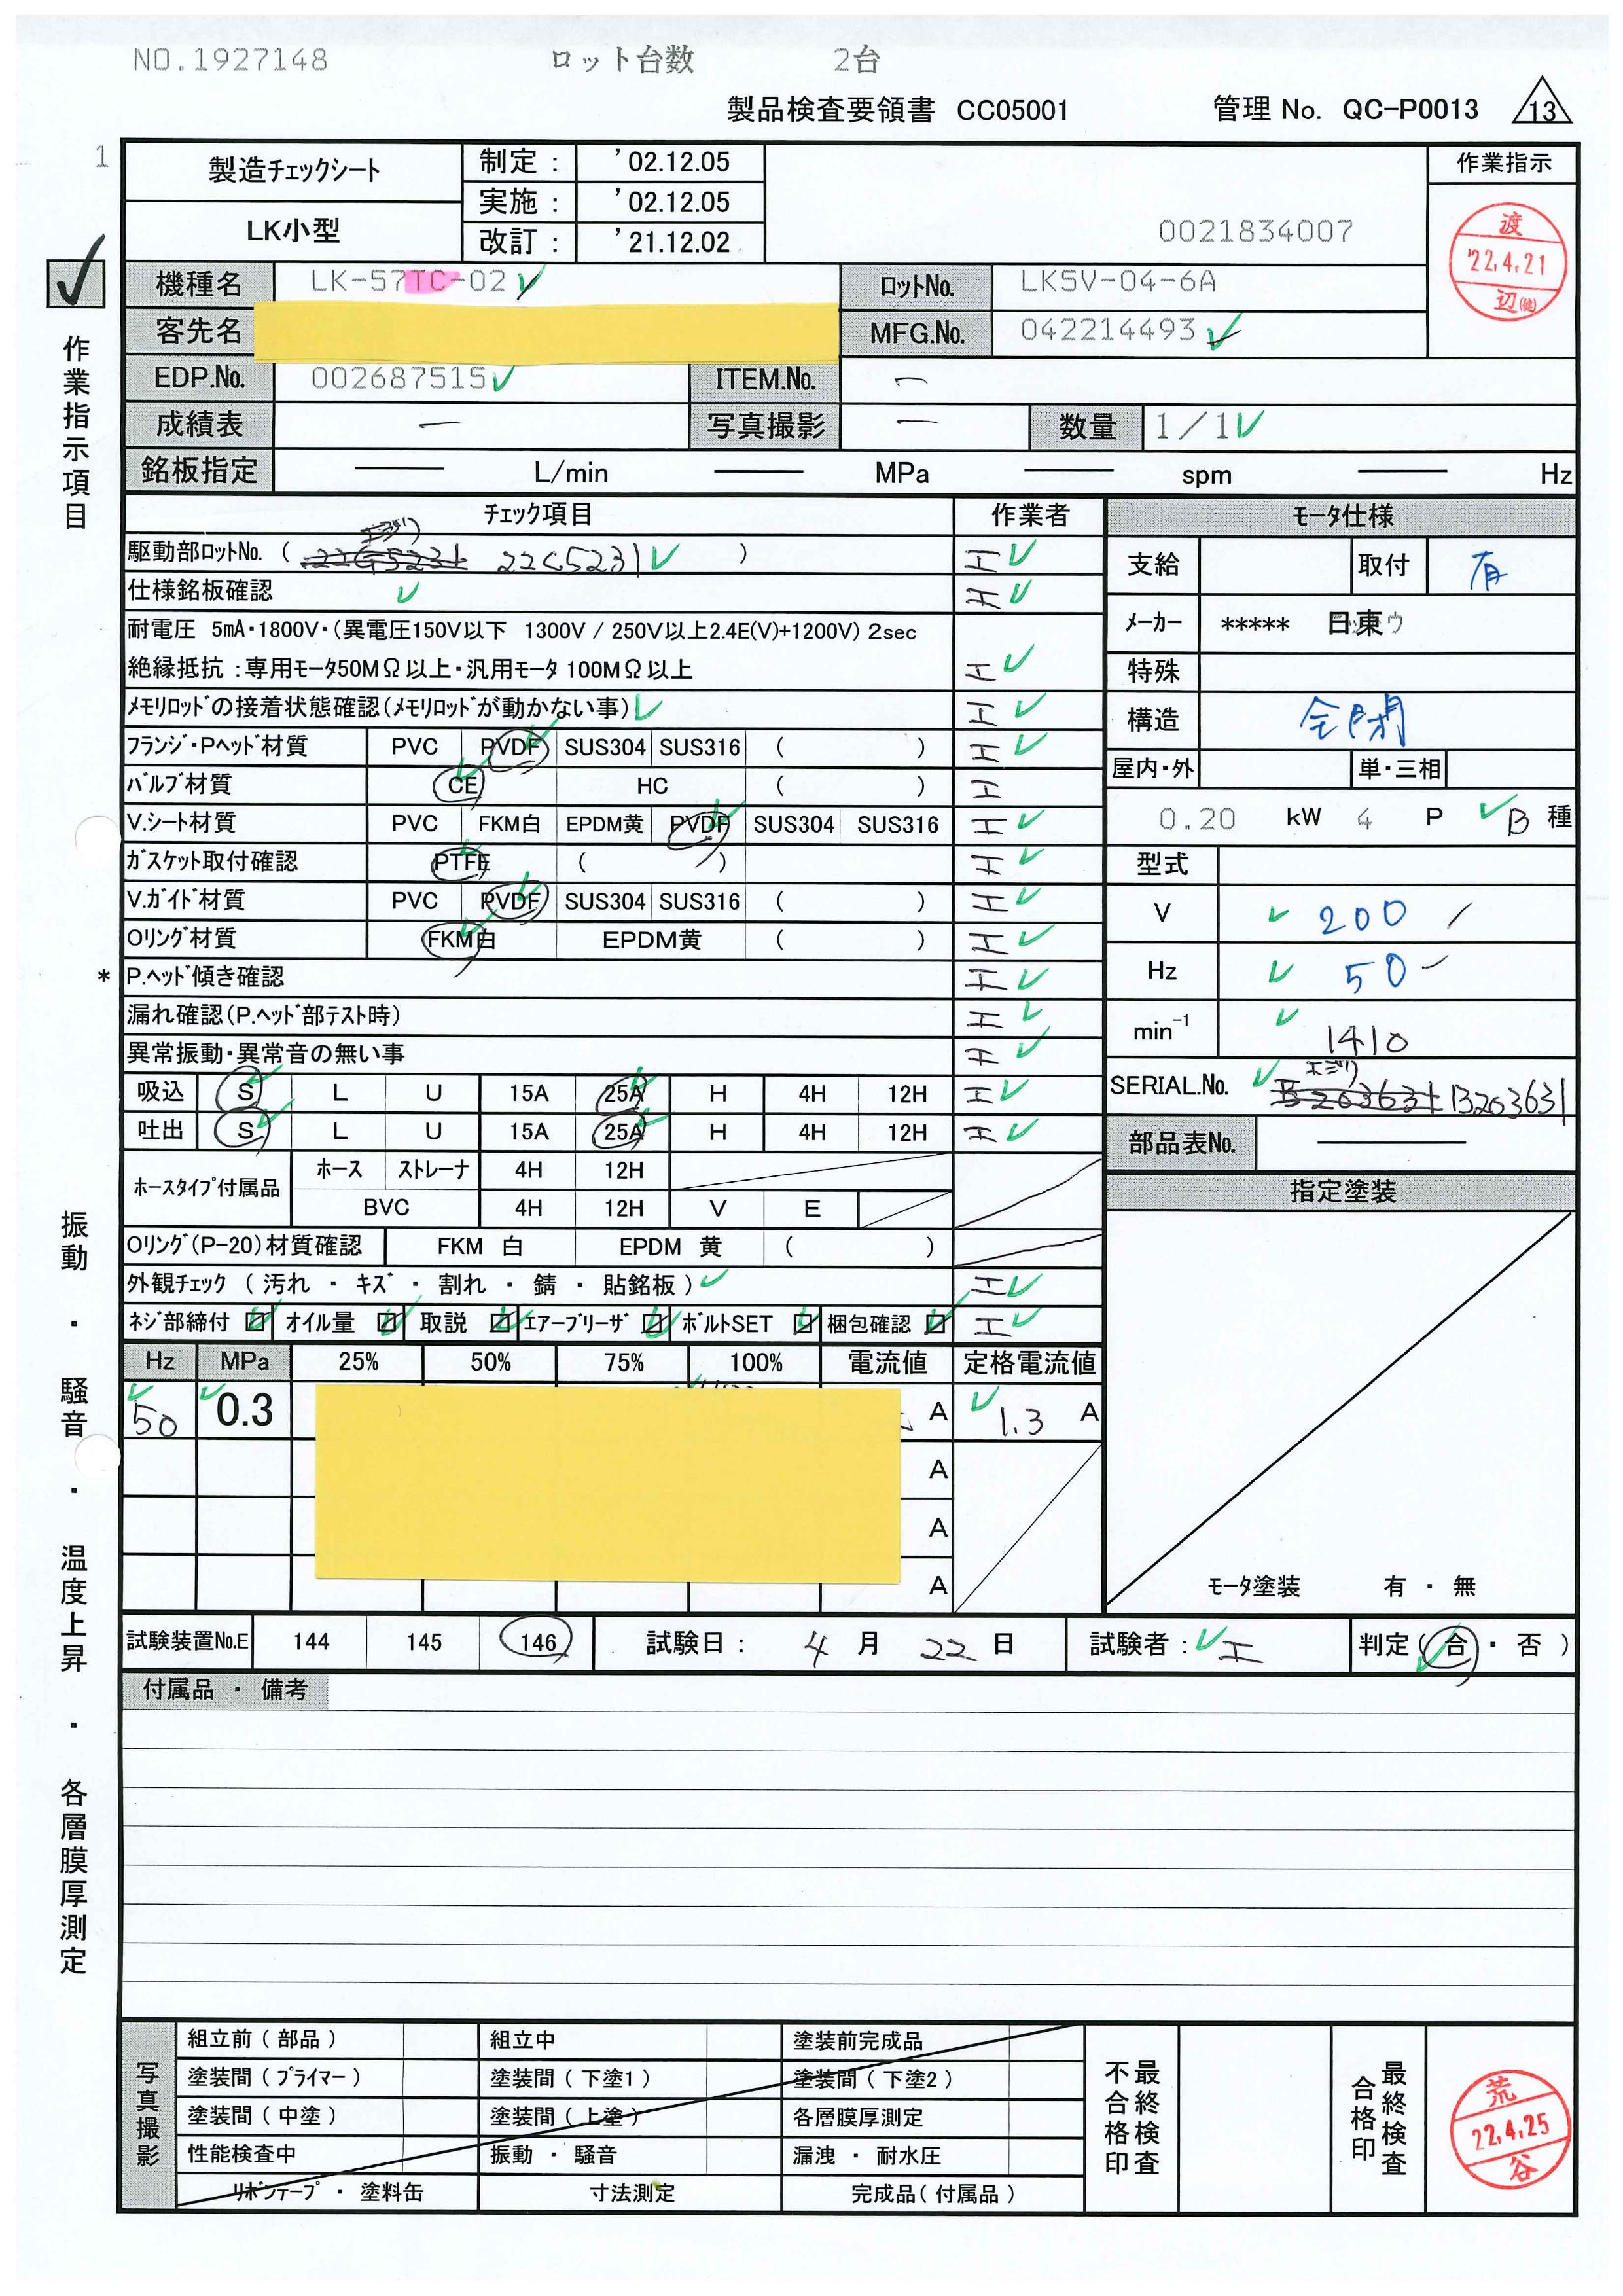 NO.1927148 ロット台数 2台
製品検査要領書 CC05001 管理 No. QC-P0013 13
1
製造チェックシート 制定： '02.12.05 作業指示
実施： '02.12.05
LK小型 改訂： '21.12.02 0021834007
渡 '22.4.21 辺(健)
機種名 LK-57TC-02 ロットNo. LK5V-04-6A
客先名 MFG.No. 042214493
EDP.No. 002687515 ITEM.No. ー
成績表 ー 写真撮影 ー 数量 1/1
銘板指定 L/min MPa spm Hz
作業指示項目
チェック項目 作業者 モータ仕様
駆動部ロットNo.（ 22G5231 22G5231 ） エ
仕様銘板確認 エ
耐電圧 5mA・1800V・(異電圧150V以下 1300V / 250V以上2.4E(V)+1200V) 2sec
絶縁抵抗：専用モータ50MΩ以上・汎用モータ100MΩ以上 エ
メモリロッドの接着状態確認(メモリロッドが動かない事) エ
フランジ・Pヘッド材質 PVC PVDF SUS304 SUS316 （ ） エ
バルブ材質 CE HC （ ） エ
V.シート材質 PVC FKM白 EPDM黄 PVDF SUS304 SUS316 エ
ガスケット取付確認 PTFE （ ） エ
V.ガイド材質 PVC PVDF SUS304 SUS316 （ ） エ
Oリング材質 FKM白 EPDM黄 （ ） エ
* P.ヘッド傾き確認 エ
漏れ確認(P.ヘッド部テスト時) エ
異常振動・異常音の無い事 エ
吸込 S L U 15A 25A H 4H 12H エ
吐出 S L U 15A 25A H 4H 12H エ
ホースタイプ付属品 ホース ストレーナ 4H 12H
BVC 4H 12H V E
Oリング(P-20)材質確認 FKM 白 EPDM 黄 （ ）
外観チェック（汚れ ・ キズ ・ 割れ ・ 錆 ・ 貼銘板） エ
ネジ部締付 オイル量 取説 エアーブリーザ ボルトSET 梱包確認 エ
支給 取付 有
メーカー ***** 日東
特殊
構造 全閉
屋内・外 単・三相
0.20 kW 4 P B 種
型式
V 200
Hz 50
min-1 1410
SERIAL.No. B203631 B203631
部品表No.
指定塗装
モータ塗装 有 ・ 無
Hz MPa 25% 50% 75% 100% 電流値 定格電流値
50 0.3 A 1.3 A
A
A
A
試験装置No.E 144 145 146 試験日： 4 月 22 日 試験者： エ 判定（ 合 ・ 否 ）
付属品 ・ 備考
振動 ・ 騒音 ・ 温度上昇 ・ 各層膜厚測定
写真撮影
組立前（部品） 組立中 塗装前完成品
塗装間（プライマー） 塗装間（下塗1） 塗装間（下塗2）
塗装間（中塗） 塗装間（上塗） 各層膜厚測定
性能検査中 振動 ・ 騒音 漏洩 ・ 耐水圧
リボンテープ ・ 塗料缶 寸法測定 完成品（付属品）
最終検査不合格印
最終検査合格印
荒 22.4.25 谷